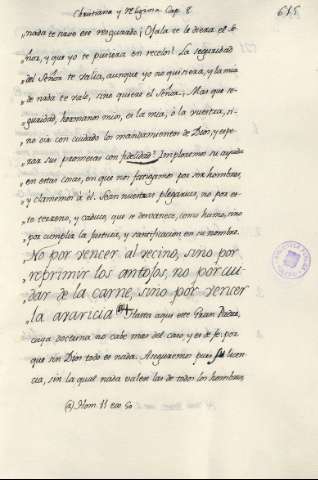 Christiana y religiosa Cap. 8. 615
„nada te tuvo eré asegurado. ¡Ojala te la diera el Se-
„ñor, y que yo te pusiera en recelos! La seguridad
„del Señor te valia, aunque yo no quisiera, y la mia
„de nada te vale, sino quiere el Señor. Mas que se-
„guridad, hermanos mios, es la mia, ó la vuestra, si-
„no oir con cuidado los mandamientos de Dios, y espe-
„rar sus promesas con fidelidad? Imploremos su ayuda
„en estas cosas, en que nos fatigamos por ser hombres,
„y clamemos á él. Sean nuestras plegarias, no por es-
„te terreno, y caduco, que se desvanece, como humo, sino
„por cumplir la justicia, y santificacion en su nombre.
„No por vencer al vecino, sino por
„reprimir los antojos, no por cui-
„dar de la carne, sino por vencer
„la avaricia (a). Hasta aqui este Gran Padre,
cuya doctrina no cabe mas del caso, y es de fe; por-
que sin Dios todo es nada. Aseguremos pues su licen-
cia, sin la qual nada valen las de todos los hombres,
(a) Hom. 11 ex 50